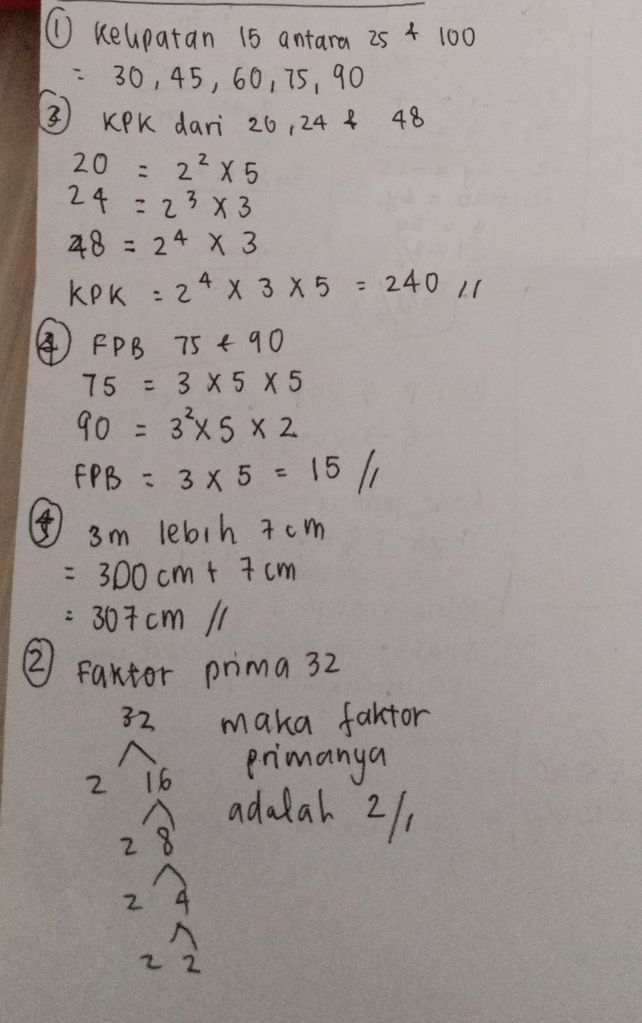 ① Kelipatan 15 antara 25 & 100
= 30, 45, 60, 75, 90
③ KPK dari 20, 24 & 48
20 = 2² X 5
24 = 2³ X 3
48 = 2⁴ X 3
KPK = 2⁴ X 3 X 5 = 240 //
④ FPB 75 & 90
75 = 3 X 5 X 5
90 = 3² X 5 X 2
FPB = 3 X 5 = 15 //
⑤ 3m lebih 7 cm
= 300 cm + 7 cm
= 307 cm //
② Faktor prima 32
32 maka faktor
2 16 primanya
2 8 adalah 2 //
2 4
2 2